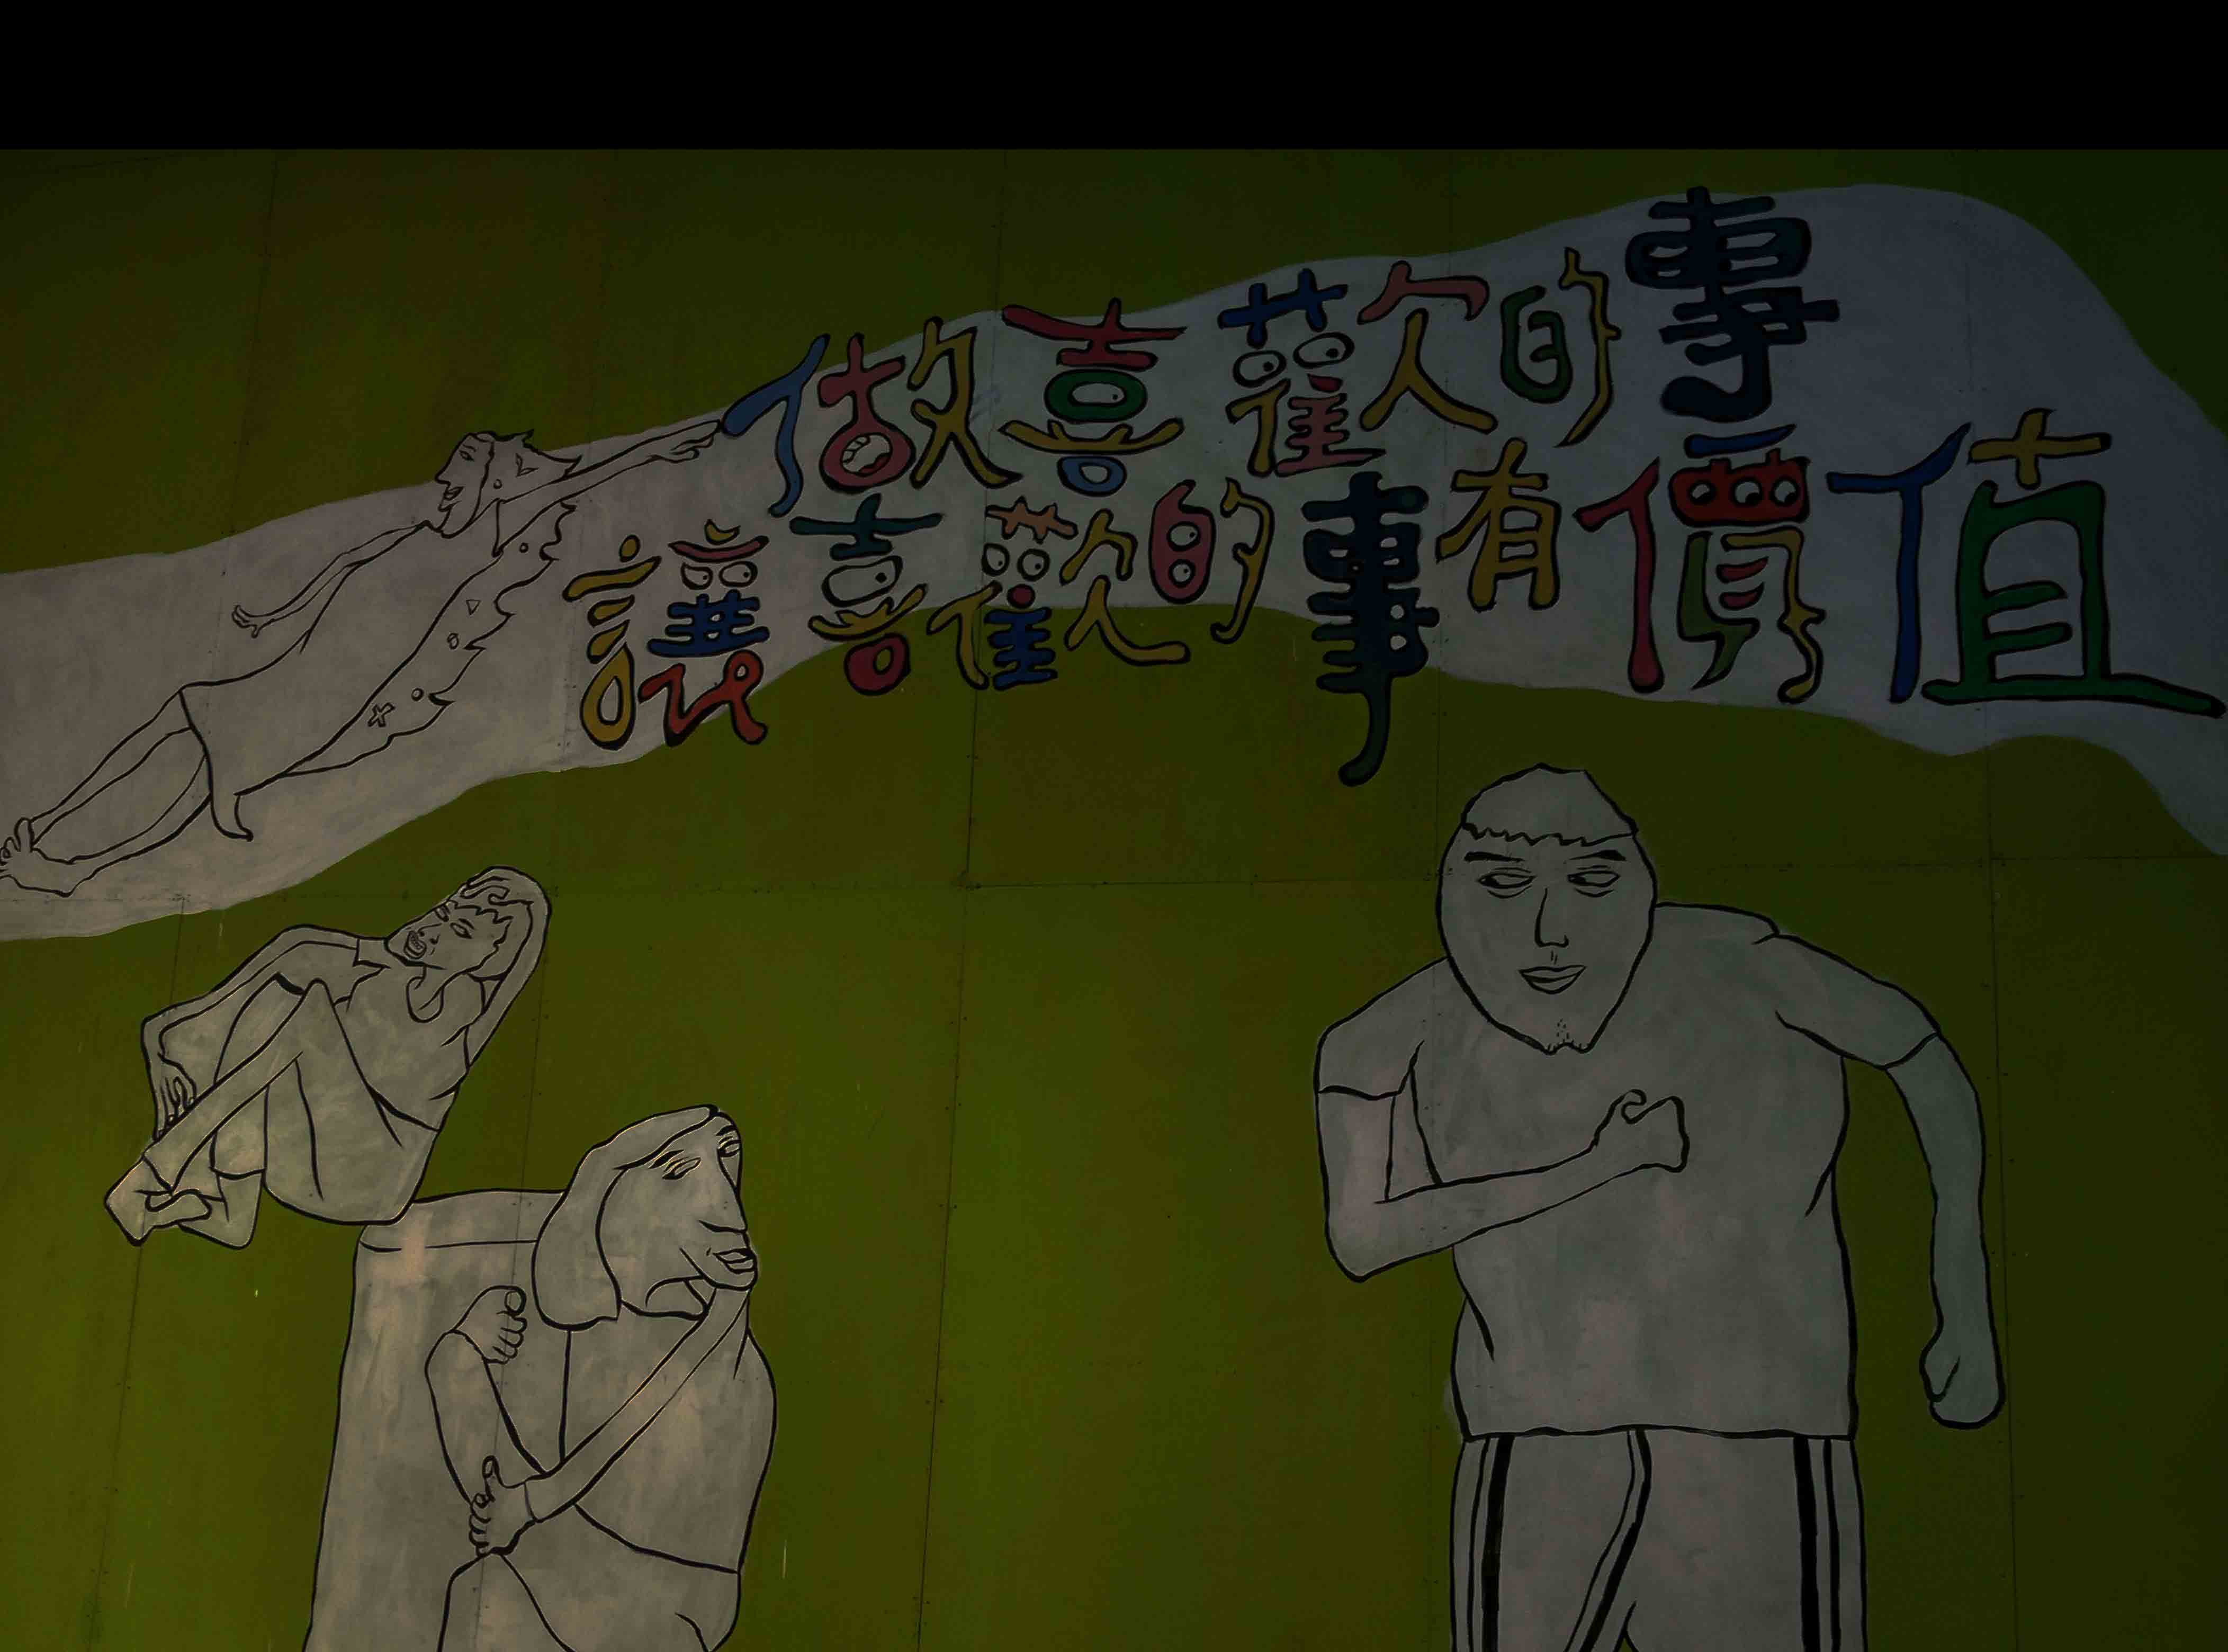 做喜歡的事
讓喜歡的事有價值